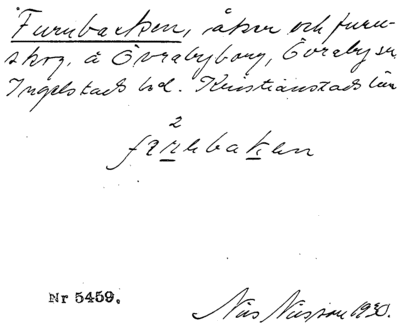 Furubacken, åker och furu-
skog, å Övrabyborg, Övraby sn,
Ingelstads hd. Kristianstads län
2
farubakan
Nr 5459.
Nils Nilsson 1930.